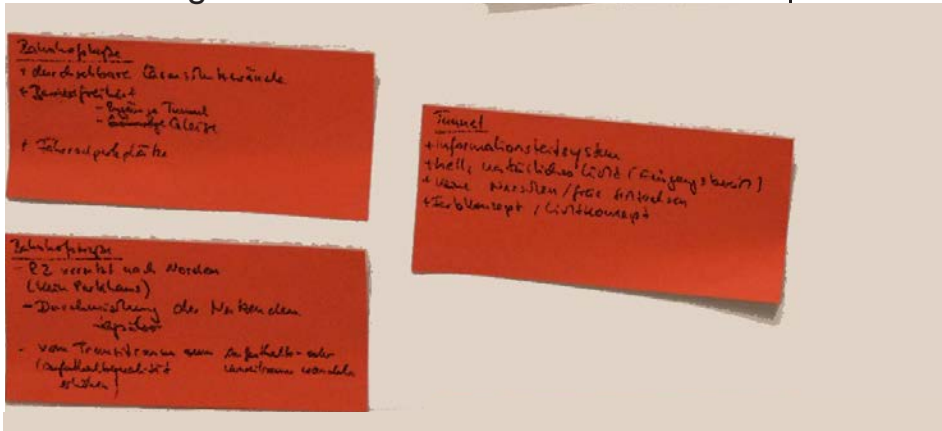 Bahnhofstraße
+ durchsehbare Lärmschutzwände
+ Barrierefreiheit
- Zugänge Tunnel
- Gleise
+ Fahrradparkplätze
Tunnel
+ Informationsleitsystem
+ hell, natürliches Licht (Eingangsbereich)
+ keine Nischen / freie
+ Farbkonzept / Lichtkonzept
Bahnhofstraße
- versetzt nach Norden
(kein Parkhaus)
- Durchmischung der Nutzenden
- vom Transitraum zum Aufenthalts- oder
(Aufenthaltsqualität wandeln
erhöhen)